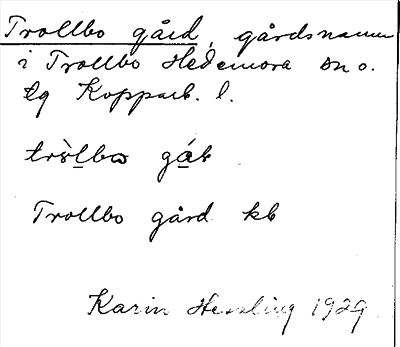 Trollbo gård, gårdsnamn
i Trollbo Hedemora sn o.
tg Kopparb. l.
Trollbo gård kb
Karin Hessling 1929